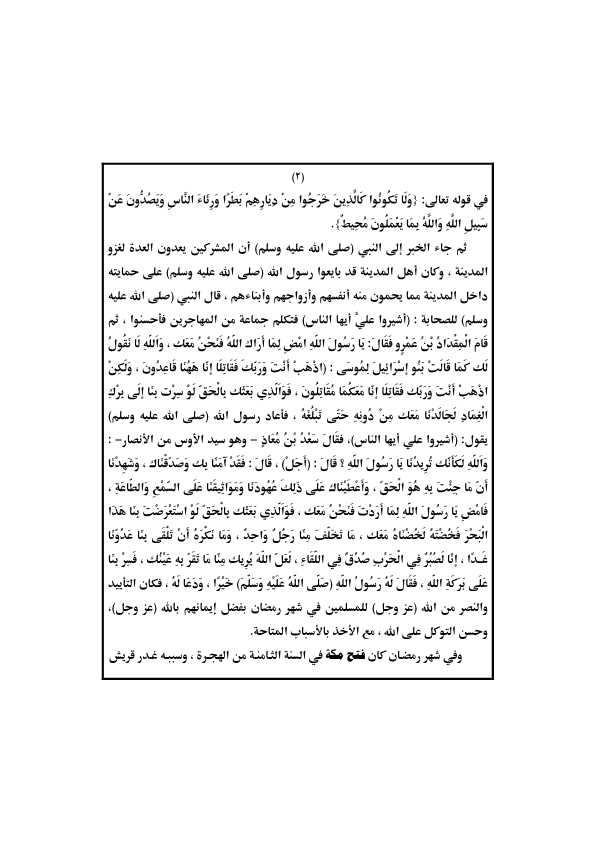 (٢)
في قوله تعالى: {وَلَا تَكُونُوا كَالَّذِينَ خَرَجُوا مِنْ دِيَارِهِمْ بَطَرًا وَرِئَاءَ النَّاسِ وَيَصُدُّونَ عَنْ
سَبِيلِ اللَّهِ وَاللَّهُ بِمَا يَعْمَلُونَ مُحِيطٌ}.
ثم جاء الخبر إلى النبي (صلى الله عليه وسلم) أن المشركين يعدون العدة لغزو
المدينة ، وكان أهل المدينة قد بايعوا رسول الله (صلى الله عليه وسلم) على حمايته
داخل المدينة مما يحمون منه أنفسهم وأزواجهم وأبناءهم ، قال النبي (صلى الله عليه
وسلم) للصحابة : (أشيروا عليَّ أيها الناس) فتكلم جماعة من المهاجرين فأحسنوا ، ثم
قَامَ الْمِقْدَادُ بْنُ عَمْرٍو فَقَالَ: يَا رَسُولَ اللَّهِ امْضِ لِمَا أَرَاكَ اللَّهُ فَنَحْنُ مَعَكَ ، وَاَللَّهِ لَا نَقُولُ
لَكَ كَمَا قَالَتْ بَنُو إسْرَائِيلَ لِمُوسَى : (اذْهَبْ أَنْتَ وَرَبُّكَ فَقَاتِلَا إنَّا هَهُنَا قَاعِدُونَ ، وَلَكِنْ
اذْهَبْ أَنْتَ وَرَبُّكَ فَقَاتِلَا إنَّا مَعَكُمَا مُقَاتِلُونَ ، فَوَاَلَّذِي بَعَثَكَ بِالْحَقِّ لَوْ سِرْتَ بِنَا إلَى بِرْكِ
الْغِمَادِ لَجَالَدْنَا مَعَكَ مِنْ دُونِهِ حَتَّى تَبْلُغَهُ ، فأعاد رسول الله (صلى الله عليه وسلم)
يقول: (أشيروا علي أيها الناس)، فَقَالَ سَعْدُ بْنُ مُعَاذٍ - وهو سيد الأوس من الأنصار- :
وَاَللَّهِ لَكَأَنَّك تُرِيدُنَا يَا رَسُولَ اللَّهِ ؟ قَالَ : (أَجَلْ) ، قَالَ : فَقَدْ آمَنَّا بِك وَصَدَّقْنَاك ، وَشَهِدْنَا
أَنَّ مَا جِئْت بِهِ هُوَ الْحَقّ ، وَأَعْطَيْنَاك عَلَى ذَلِكَ عُهُودَنَا وَمَوَاثِيقَنَا عَلَى السَّمْعِ وَالطَّاعَةِ ،
فَامْضِ يَا رَسُولَ اللَّهِ لِمَا أَرَدْتَ فَنَحْنُ مَعَك ، فَوَاَلَّذِي بَعَثَك بِالْحَقِّ لَوْ اسْتَعْرَضْتَ بِنَا هَذَا
الْبَحْرَ فَخُضْتَهُ لَخُضْنَاهُ مَعَك ، مَا تَخَلَّفَ مِنَّا رَجُلٌ وَاحِدٌ ، وَمَا نَكْرَهُ أَنْ تَلْقَى بِنَا عَدُوَّنَا
غَـدًا ، إنَّا لَصُبُرٌ فِي الْحَرْبِ صُدُقٌ فِي اللّقَاءِ ، لَعَلّ اللّهَ يُرِيكَ مِنَّا مَا تَقَرّ بِهِ عَيْنُك ، فَسِرْ بِنَا
عَلَى بَرَكَةِ اللَّهِ ، فَقَالَ لَهُ رَسُولُ اللَّهِ (صَلَّى اللَّهُ عَلَيْهِ وَسَلَّمَ) خَيْرًا ، وَدَعَا لَهُ ، فكان التأييد
والنصر من الله (عز وجل) للمسلمين في شهر رمضان بفضل إيمانهم بالله (عز وجل)،
وحسن التوكل على الله ، مع الأخذ بالأسباب المتاحة.
وفي شهر رمضان كان فتح مكة في السنة الثامنة من الهجرة ، وسببه غدر قريش